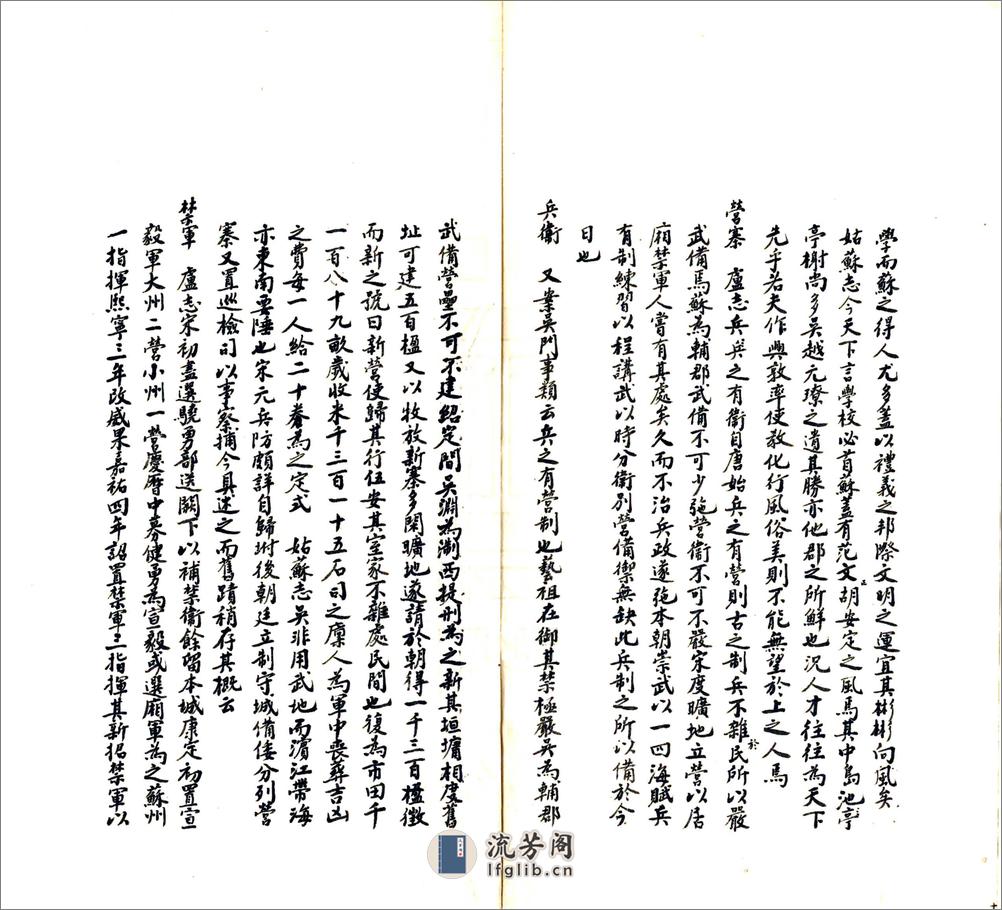 學而蘇之得人尤多蓋以禮義之邦際文明之運宜其彬彬向風矣
姑蘇志今天下言學校必首蘇蓋有范文正胡安定之風焉其中島池亭
亭榭尚多吳越元璙之遺其勝亦他郡之所鮮也況人才往往為天下
先乎若夫作興敦率使教化行風俗美則不能無望於上之人焉
營寨　盧志兵兵之有衛自唐始兵之有營則古之制兵不雜於民所以嚴
武備焉蘇為輔郡武備不可少弛營衛不可不嚴宋度曠地立營以居
廂禁軍人嘗有其處矣久而不治兵政遂弛本朝崇武以一四海賦兵
有制練習以程講武以時分衛別營備禦無缺此兵制之所以備於今
日也
兵衛　又案吳門事類云兵之有營制也藝祖在御其禁極嚴吳為輔郡
武備營壘不可不建紹定間吳淵為浙西提刑為之新其垣墉相度舊
址可建五百楹又以牧放新寨多閑曠地遂請於朝得一千三百楹徵
而新之號曰新營使歸其行伍安其室家不雜處民間也復為市田千
一百八十九畝歲收米千三百一十五石司之廩人為軍中喪葬吉凶
之費每一人給二十券為之定式　姑蘇志吳非用武地而濵江帶海
亦東南要陲也宋元兵防頗詳自歸附後朝廷立制守城備倭分列營
寨又置巡檢司以事察捕今具述之而舊蹟稍存其概云
禁軍　盧志宋初盡選驍勇部送闕下以補禁衛餘留本城康定初置宣
毅軍大州二營小州一營慶曆中募健勇為宣毅或選廂軍為之蘇州
一指揮熙寧三年改威果嘉祐四年詔置禁軍三指揮其新招禁軍以
流芳阁
lfglib.cn